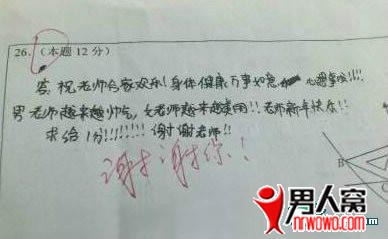 26.（本题12分）
答：祝老师合家欢乐！身体健康 万事如意 心想事成！！！
男老师越来越帅气，女老师越来越美丽！！老师新年快乐！！
求给1分！！！！！！！谢谢老师！！
谢谢你！
男人窝
nrwowo.com